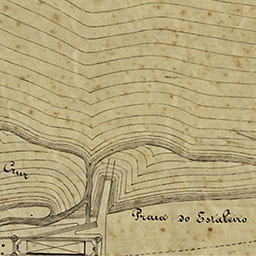 Cruz
Praia do Estaleiro